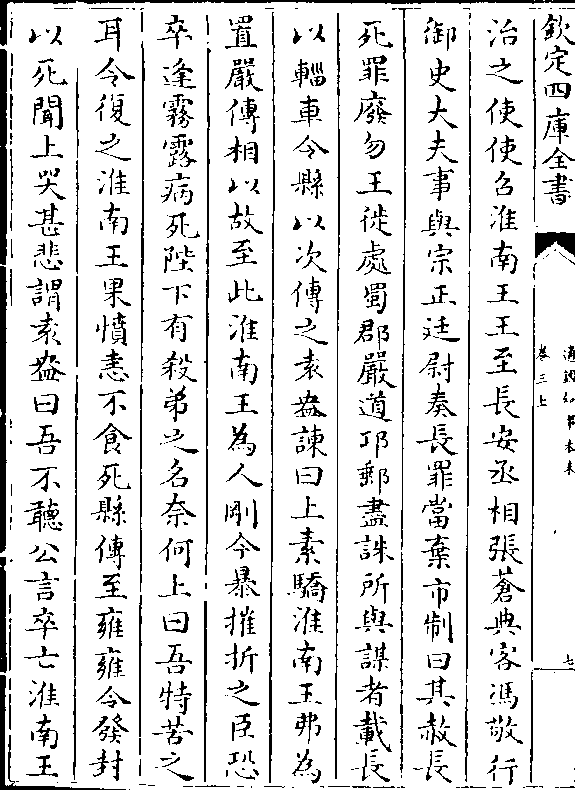 欽定四庫全書
通鑑紀事本末
卷三上
七
治之使使召淮南王王至長安丞相張蒼典客馮敬行
御史大夫事與宗正廷尉奏長罪當棄市制曰其赦長
死罪廢勿王徙處蜀郡嚴道卭郵盡誅所與謀者載長
以輜車令縣以次傳之袁盎諫曰上素驕淮南王弗為
置嚴傅相以故至此淮南王為人剛今暴摧折之臣恐
卒逢霧露病死陛下有殺弟之名奈何上曰吾特苦之
耳今復之淮南王果憤恚不食死縣傳至雍雍令發封
以死聞上哭甚悲謂袁盎曰吾不聽公言卒亡淮南王